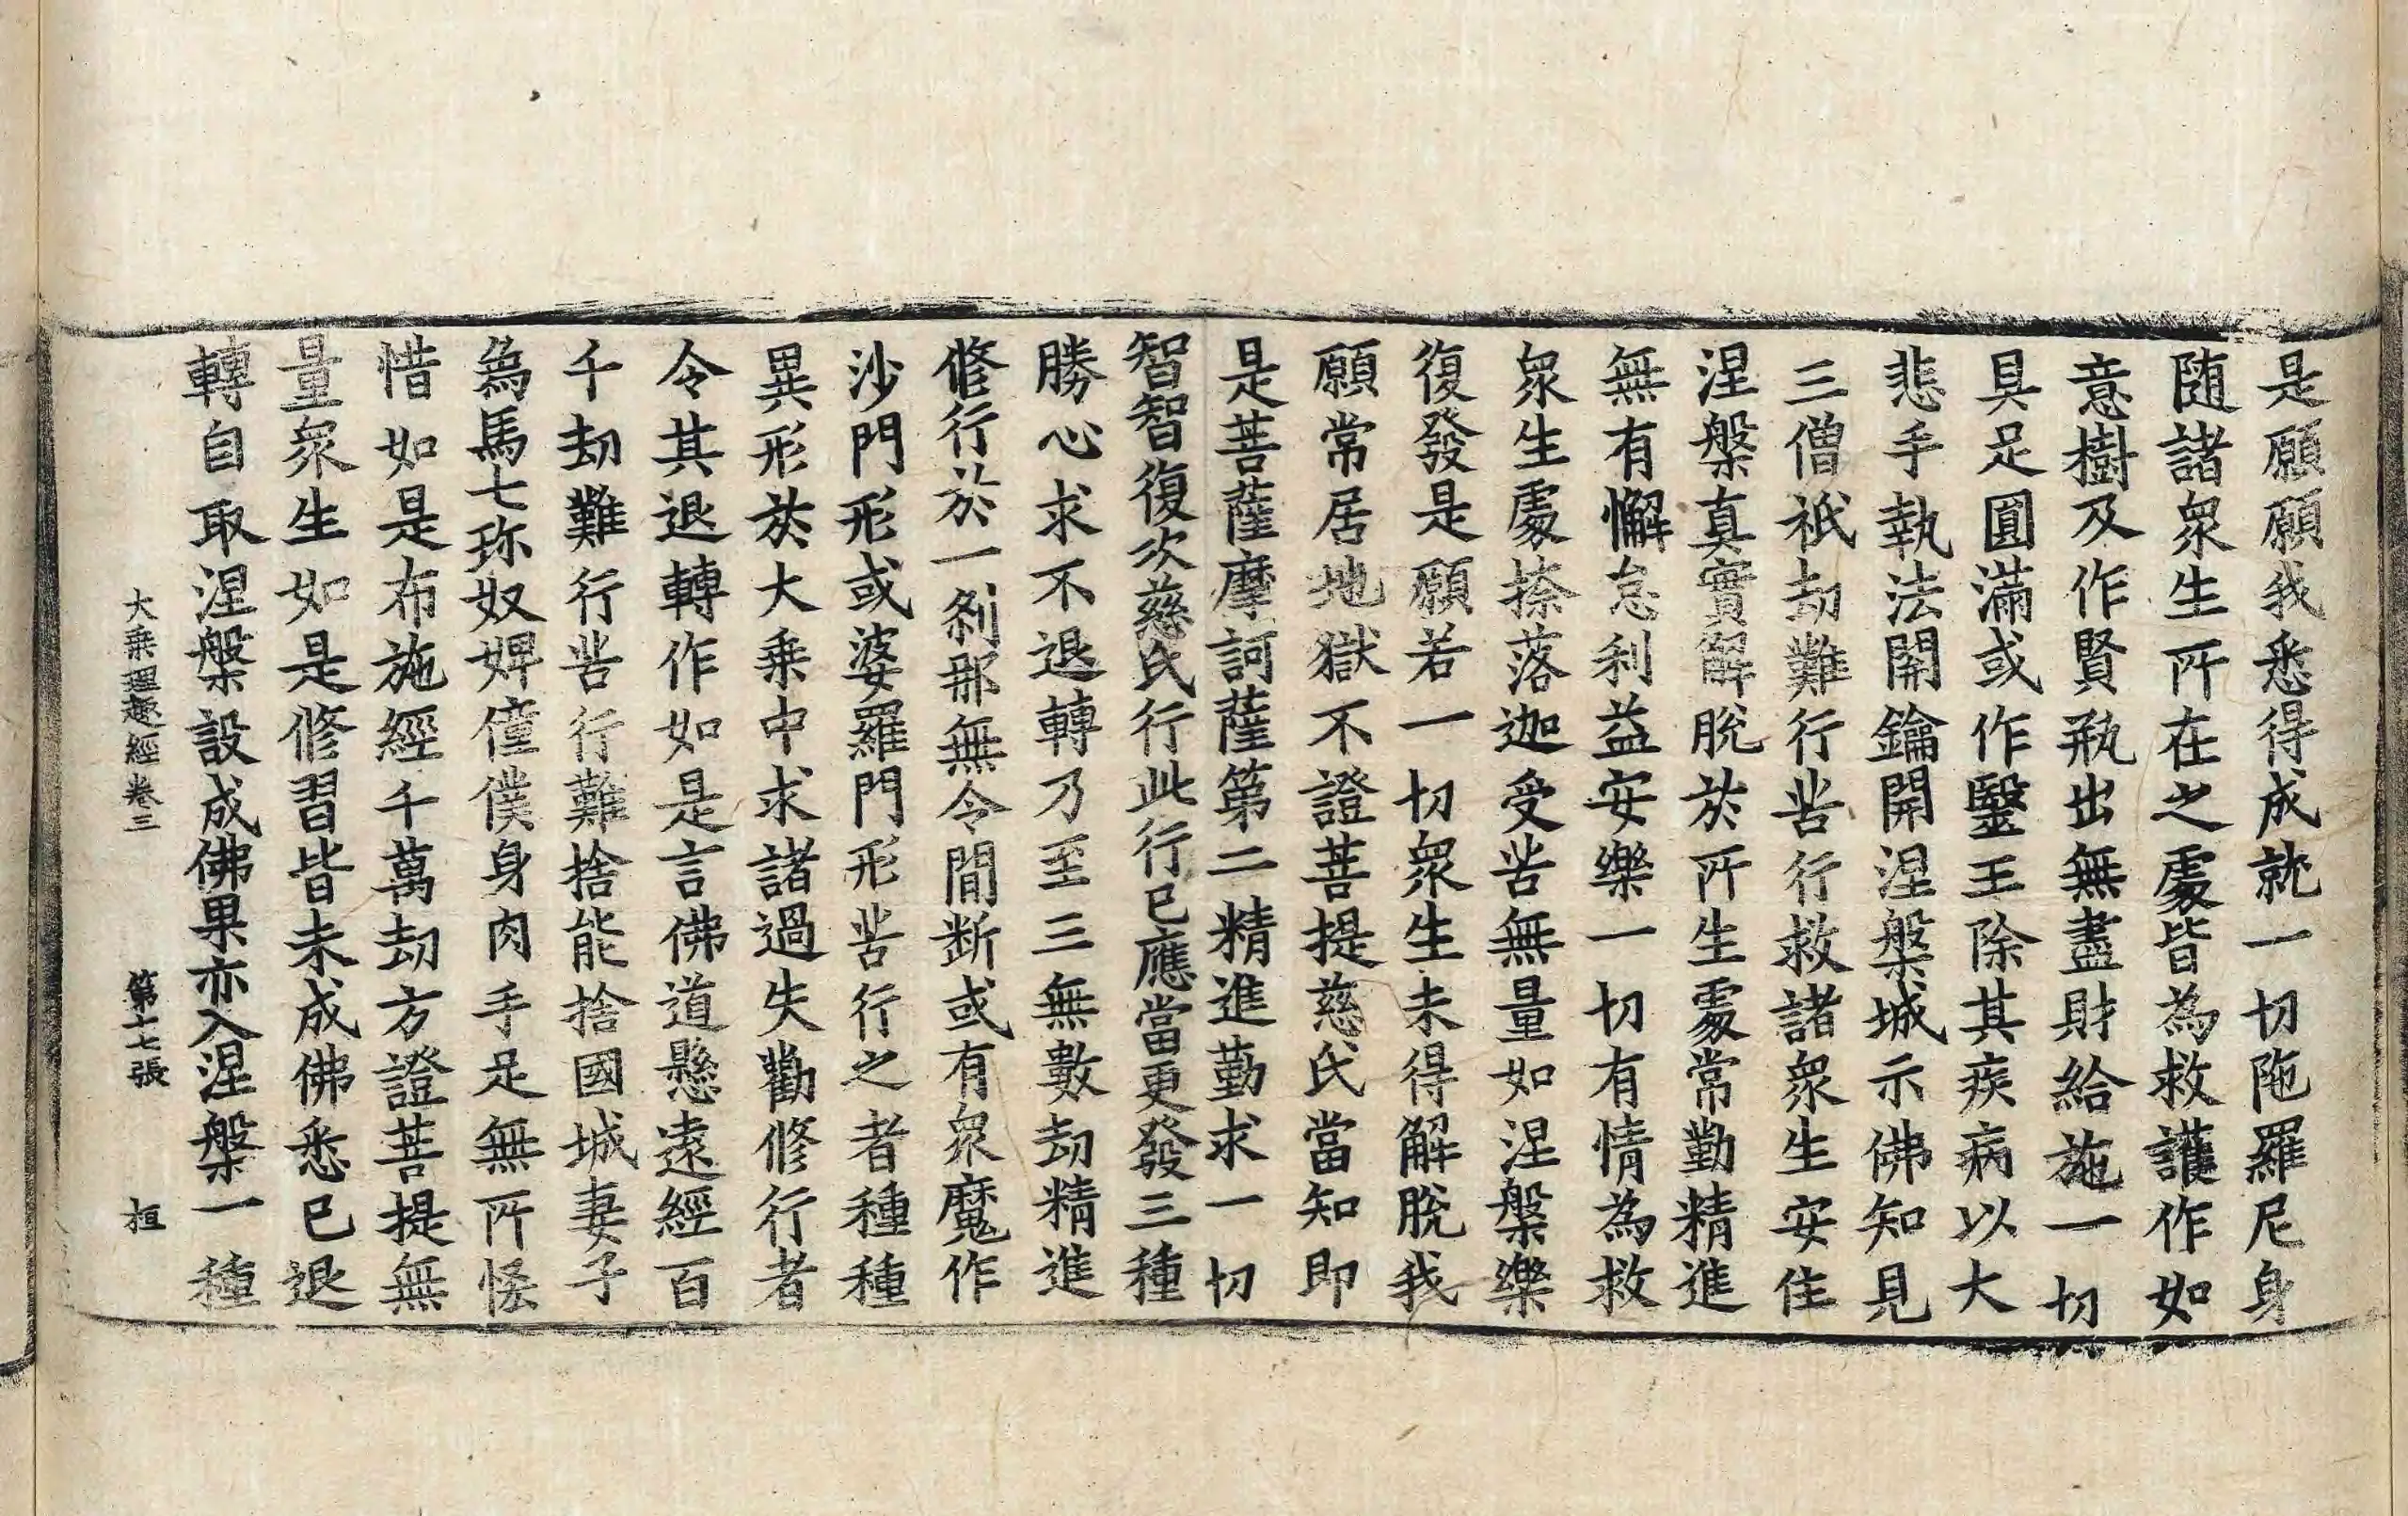 是願願我悉得成就一切陁羅尼身
随諸衆生所在之處皆為救護作如
意樹及作賢瓶出無盡財給施一切
具足圓滿或作毉王除其疾病以大
悲手執法開鑰開涅槃城示佛知見
三僧祇劫難行苦行救諸衆生安住
涅槃真實解脫於所生處常勤精進
無有懈怠利益安樂一切有情為救
衆生處捺落迦受苦無量如涅槃樂
復發是願若一切衆生未得解脫我
願常居地獄不證菩提慈氏當知即
是菩薩摩訶薩第二精進勤求一切
智智復次慈氏行此行已應當更發三種
勝心求不退轉乃至三無數劫精進
修行於一刹那無令間斷或有衆魔作
沙門形或婆羅門形苦行之者種種
異形於大乗中求諸過失勸修行者
令其退轉作如是言佛道懸遠經百
千劫難行苦行難捨能捨國城妻子
為馬七珎奴婢僮僕身肉手足無所恡
惜如是布施經千萬劫方證菩提無
量衆生如是修習皆未成佛悉已退
轉自取涅槃設成佛果亦入涅槃一種
大乗理趣經卷三 第十七張 桓